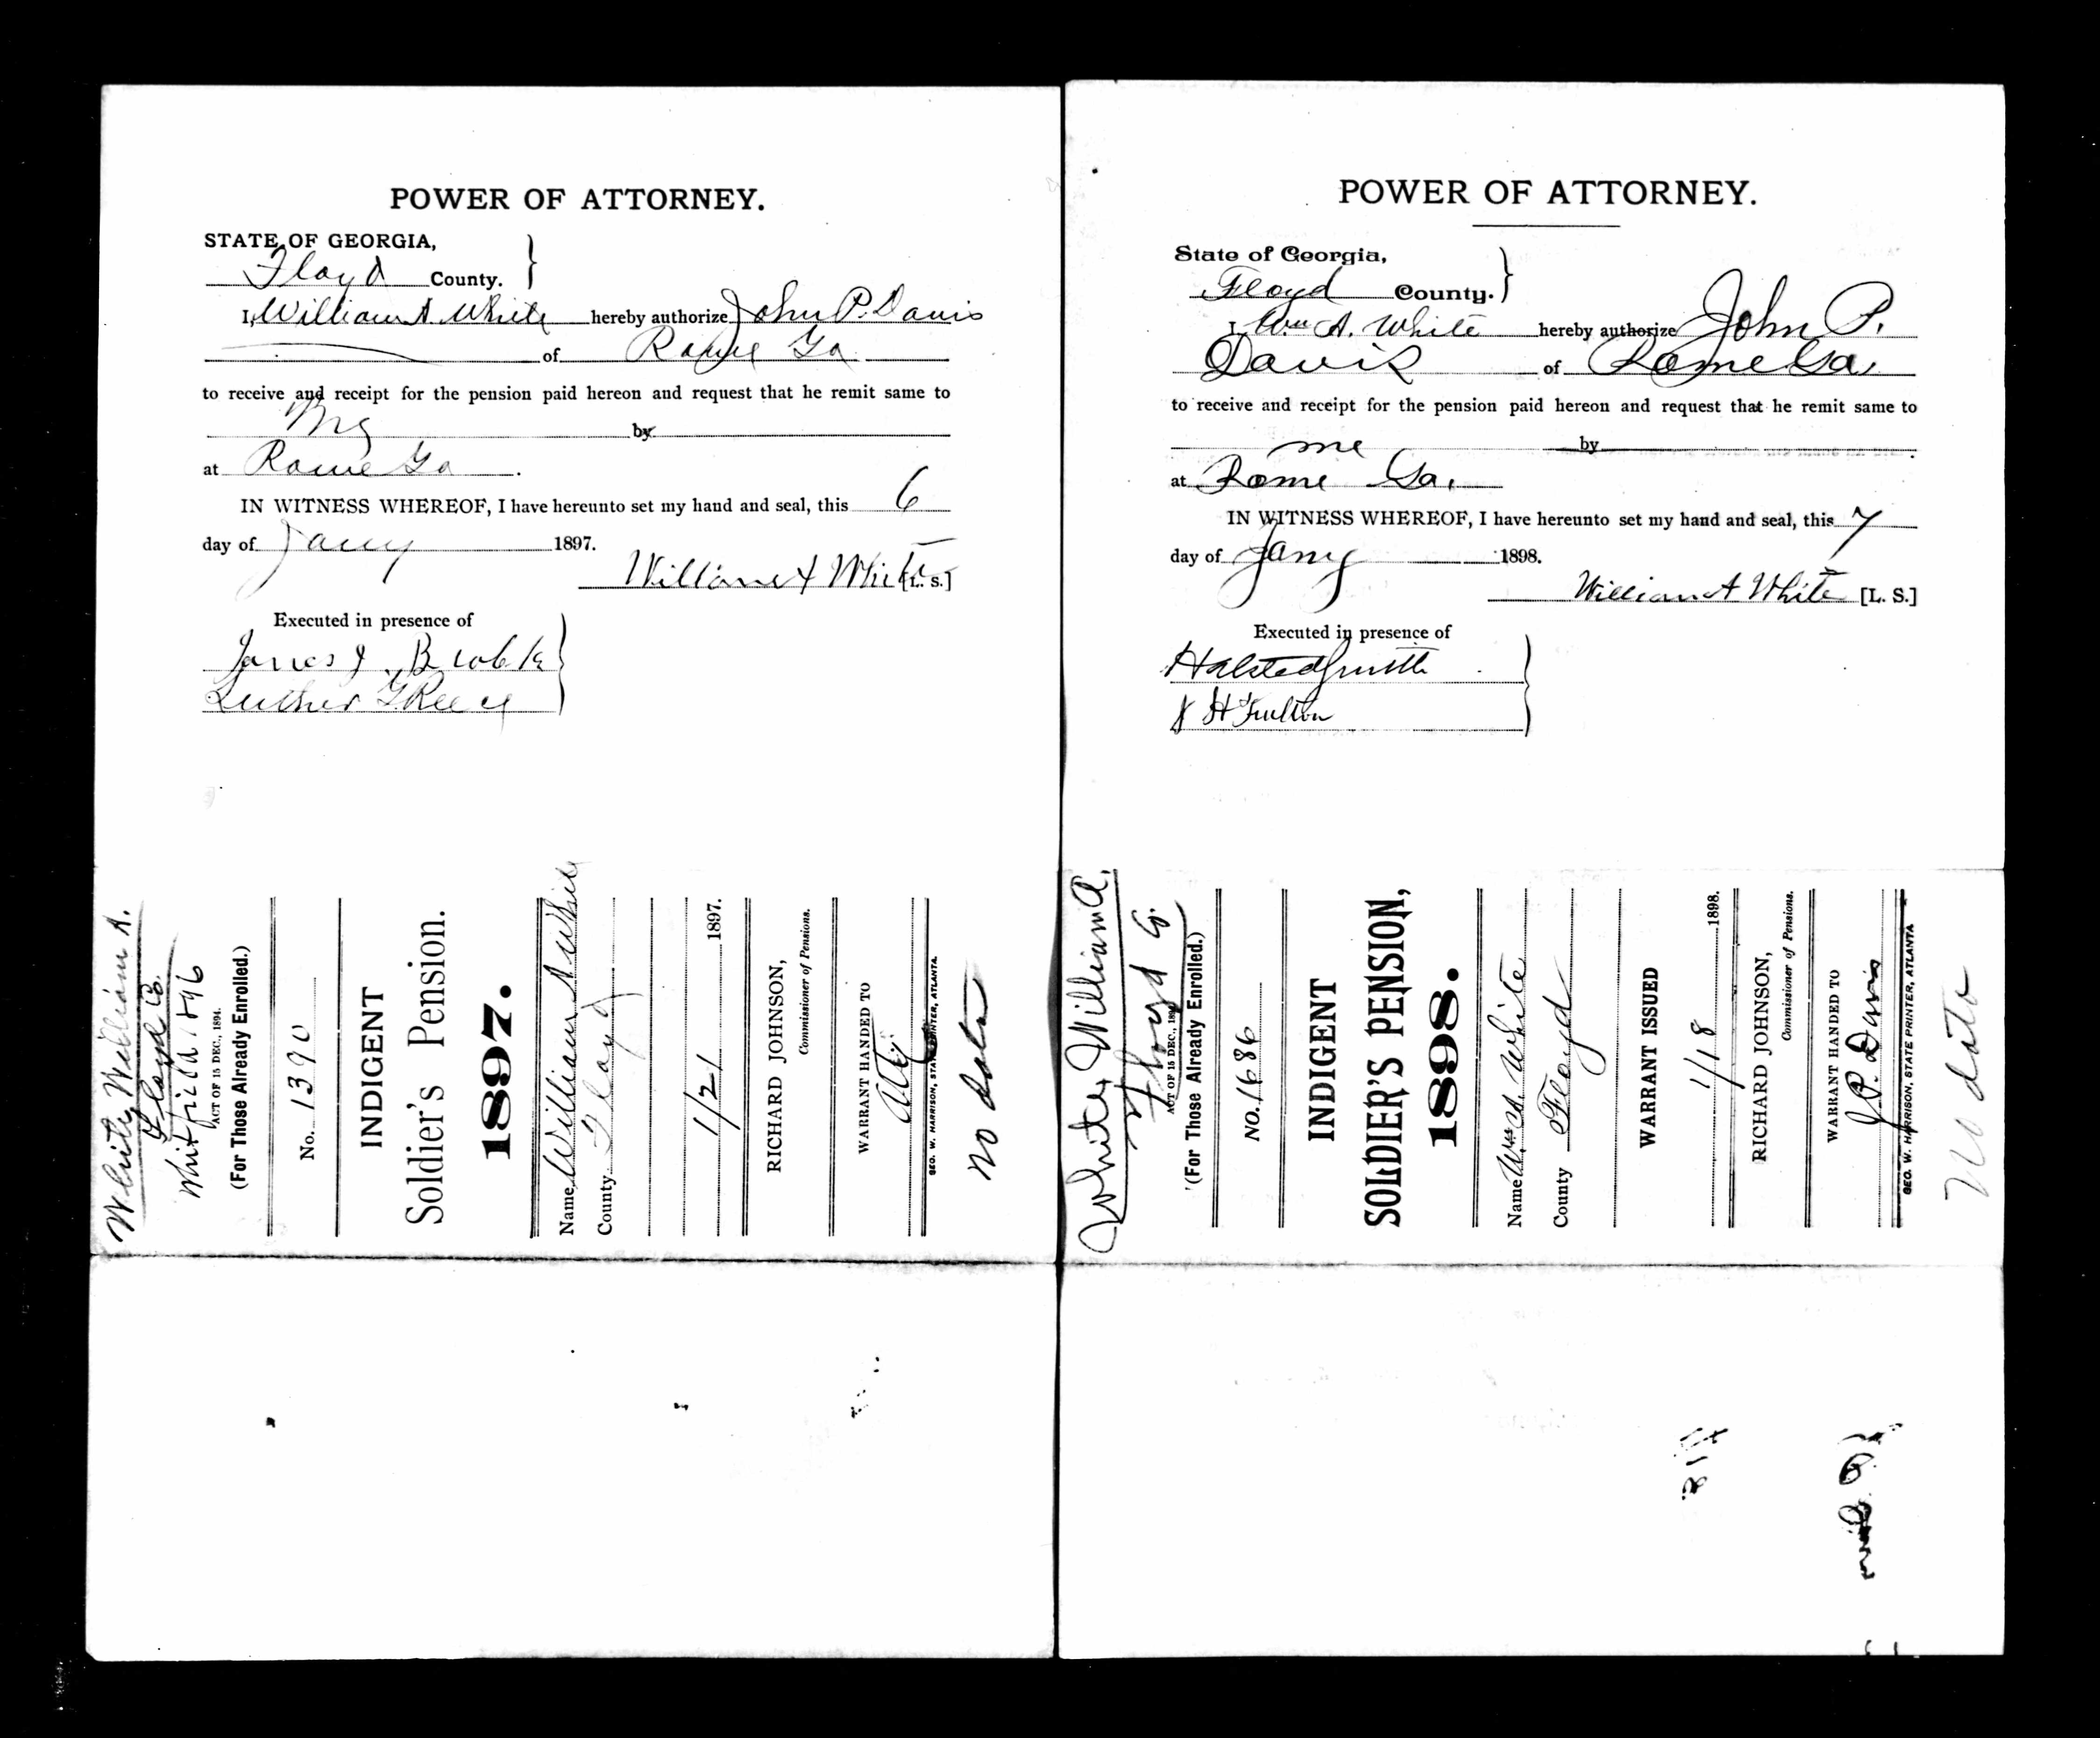 POWER OF ATTORNEY.
STATE OF GEORGIA,
Floyd County.
I, William A. White hereby authorize John P. Davis
of Rome Ga
to receive and receipt for the pension paid hereon and request that he remit same to
Me by
at Rome Ga.
IN WITNESS WHEREOF, I have hereunto set my hand and seal, this 6
day of Jany 1897.
William A White [L. S.]
Executed in presence of
James J.
Luther G Reece
White, William A.
Floyd Co.
Whitfield 1896
ACT OF 15 DEC., 1894.
(For Those Already Enrolled.)
No. 1390
INDIGENT
Soldier's Pension.
1897.
Name William A White
County Floyd
1/21 1897.
RICHARD JOHNSON,
Commissioner of Pensions.
WARRANT HANDED TO
GEO. W. HARRISON, STATE PRINTER, ATLANTA.
No data
POWER OF ATTORNEY.
State of Georgia,
Floyd County.
I, Wm A. White hereby authorize John P.
Davis of Rome Ga.
to receive and receipt for the pension paid hereon and request that he remit same to
me by
at Rome Ga.
IN WITNESS WHEREOF, I have hereunto set my hand and seal, this 7
day of Jany 1898.
William A White [L. S.]
Executed in presence of
Halsted Smith
H Fulton
White, William A.
Floyd Co.
ACT OF 15 DEC., 1894
(For Those Already Enrolled.)
NO. 1686
INDIGENT
SOLDIER'S PENSION,
1898.
Name Wm A. White
County Floyd
WARRANT ISSUED
1/18 1898.
RICHARD JOHNSON,
Commissioner of Pensions.
WARRANT HANDED TO
J.P. Davis
GEO. W. HARRISON, STATE PRINTER, ATLANTA
No data